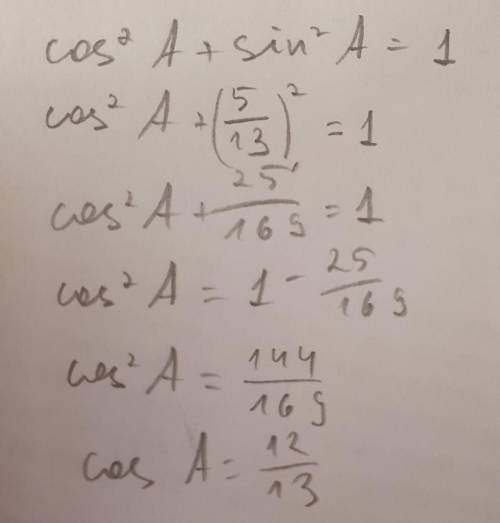 cos² A + sin² A = 1
cos² A + (5/13)² = 1
cos² A + 25/169 = 1
cos² A = 1 - 25/169
cos² A = 144/169
cos A = 12/13